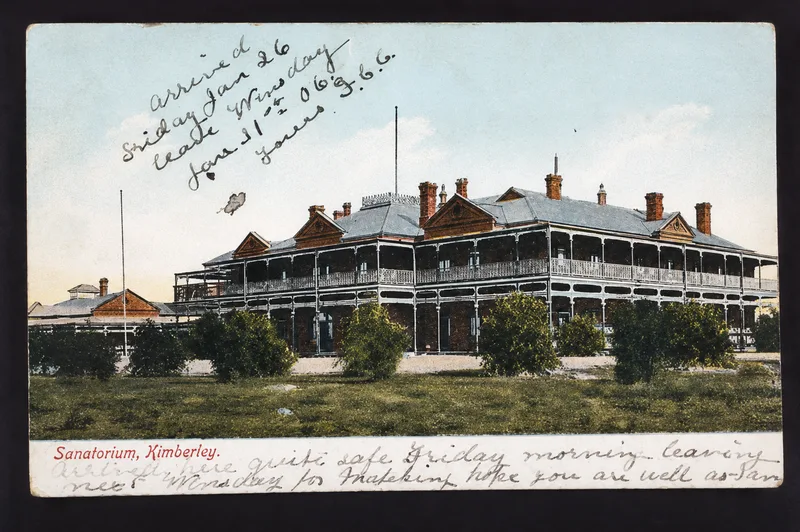 arrived
Friday Jan 26
leave Winsday
Jan 31st 06.
yours J.C.C.
Sanatorium, Kimberley.
arrived here quite safe Friday morning leaving
next Winsday for Mafeking hope you are well as I am